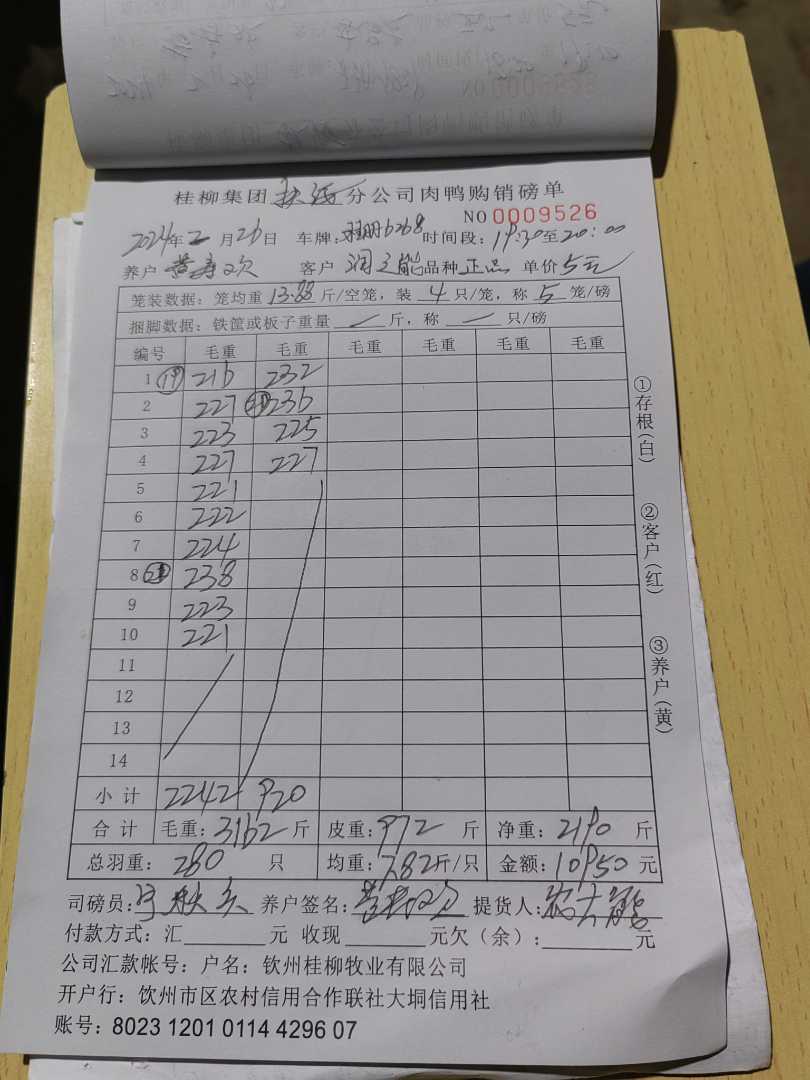 桂柳集团 扶绥 分公司肉鸭购销磅单
NO 0009526
2024年2月26日 车牌: 6268 时间段:19:30至20:00
养户 黄寿欢 客户 润之能 品种 正品 单价 5元
笼装数据:笼均重 13.88 斤/空笼,装 4 只/笼,称 5 笼/磅
捆脚数据:铁筐或板子重量 / 斤,称 / 只/磅
编号 毛重 毛重 毛重 毛重 毛重 毛重
1 (19) 216 232
2 227 236
3 223 225
4 227 227
5 221
6 222
7 224
8 238
9 223
10 221
11
12
13
14
小计 2242 920
合计 毛重:3162 斤 皮重:972 斤 净重:2190 斤
总羽重:280 只 均重:7.82斤/只 金额:10950 元
司磅员: 养户签名: 提货人:
付款方式:汇 元 收现 元欠(余): 元
公司汇款帐号:户名:钦州桂柳牧业有限公司
开户行:饮州市区农村信用合作联社大垌信用社
账号:8023 1201 0114 4296 07
①存根(白)
②客户(红)
③养户(黄)